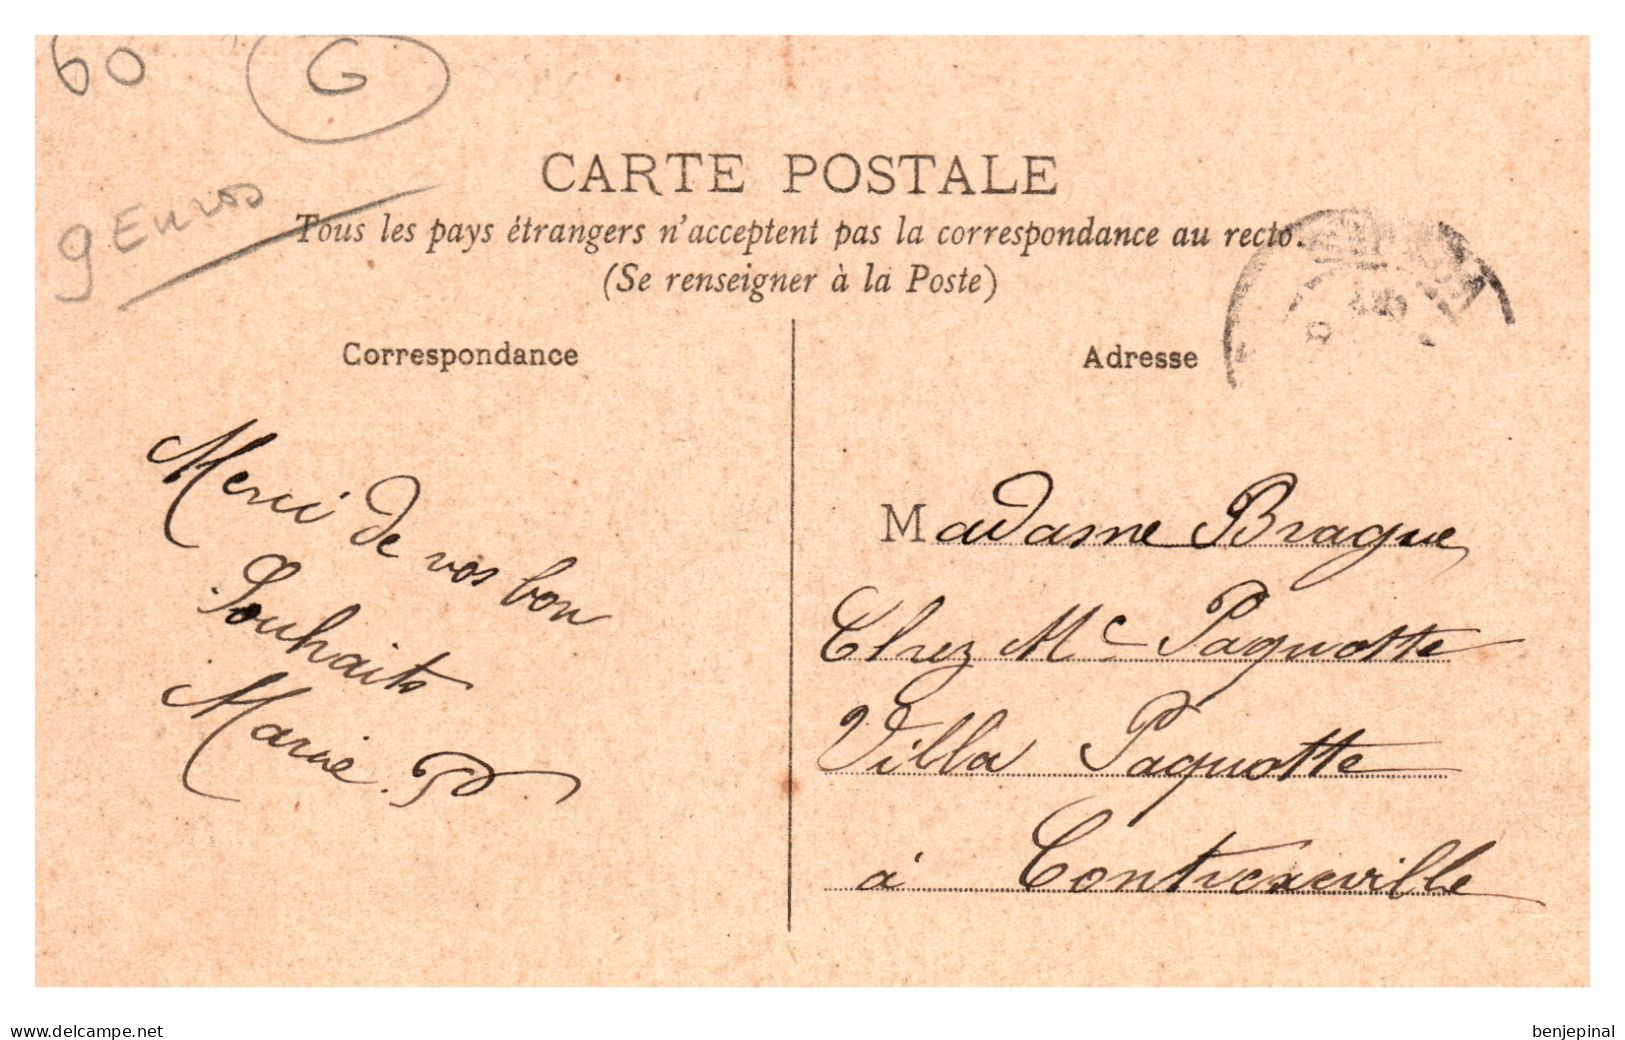 60
G
9 Euros
CARTE POSTALE
Tous les pays étrangers n'acceptent pas la correspondance au recto.
(Se renseigner à la Poste)
Correspondance
Adresse
Merci de vos bon
Souhaits
Marie.
Madame Brague
Chez Mc Paquotte
Villa Paquotte
à Contrexeville
www.delcampe.net
benjepinal